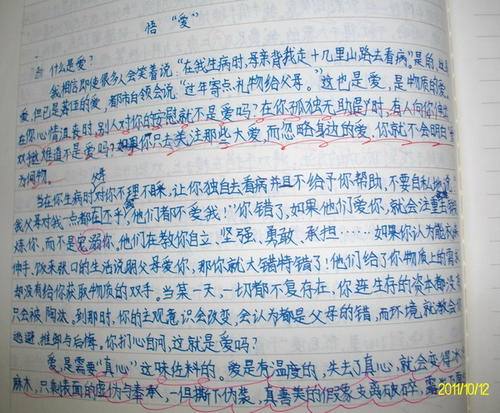 悟 “爱”
什么是爱?
我相信即使很多人会笑着说:“在我生病时,母亲背我走十几里山路去看病。”是的,这
爱,但已是莫证的爱,都市白领会说:“过年寄点礼物给父母。”这也是爱,是物质的爱。
在你心情沮丧时,别人对你的安慰就不是爱吗?在你孤独无助时,有人向你伸出
双手,难道不是爱吗?如果你只去关注那些大爱,而忽略身边的爱,你就不会明白
为何物。
当在你生病时父母对你不理不睬,让你独自去看病并且不给予你帮助,不要自私地说:
我父母对我一点都不在乎,他们都不爱我!”你错了,如果他们爱你,就会注重去锻
炼你,而不是宠溺你,他们在教你自立、坚强、勇敢、承担……如果你认为能衣来
伸手,饭来张口的生活说明父母爱你,那你就大错特错了:他们给了你物质上的富
却没有给你获取物质的双手。当某一天,一切都不复存在,你连生存的资本都没有
只会被淘汰。到那时,你的主观意识会改变,会认为都是父母的错,而环境,就教会你
逃避、推卸与后悔,你扪心自问,这就是爱吗?
爱是需要“真心”这味佐料的。爱是有温度的,失去了真心,就会变得冰
麻木,只剩表面的虚伪与奉承,一但撕下伪装,真善美的假象支离破碎,露
2011/10/12